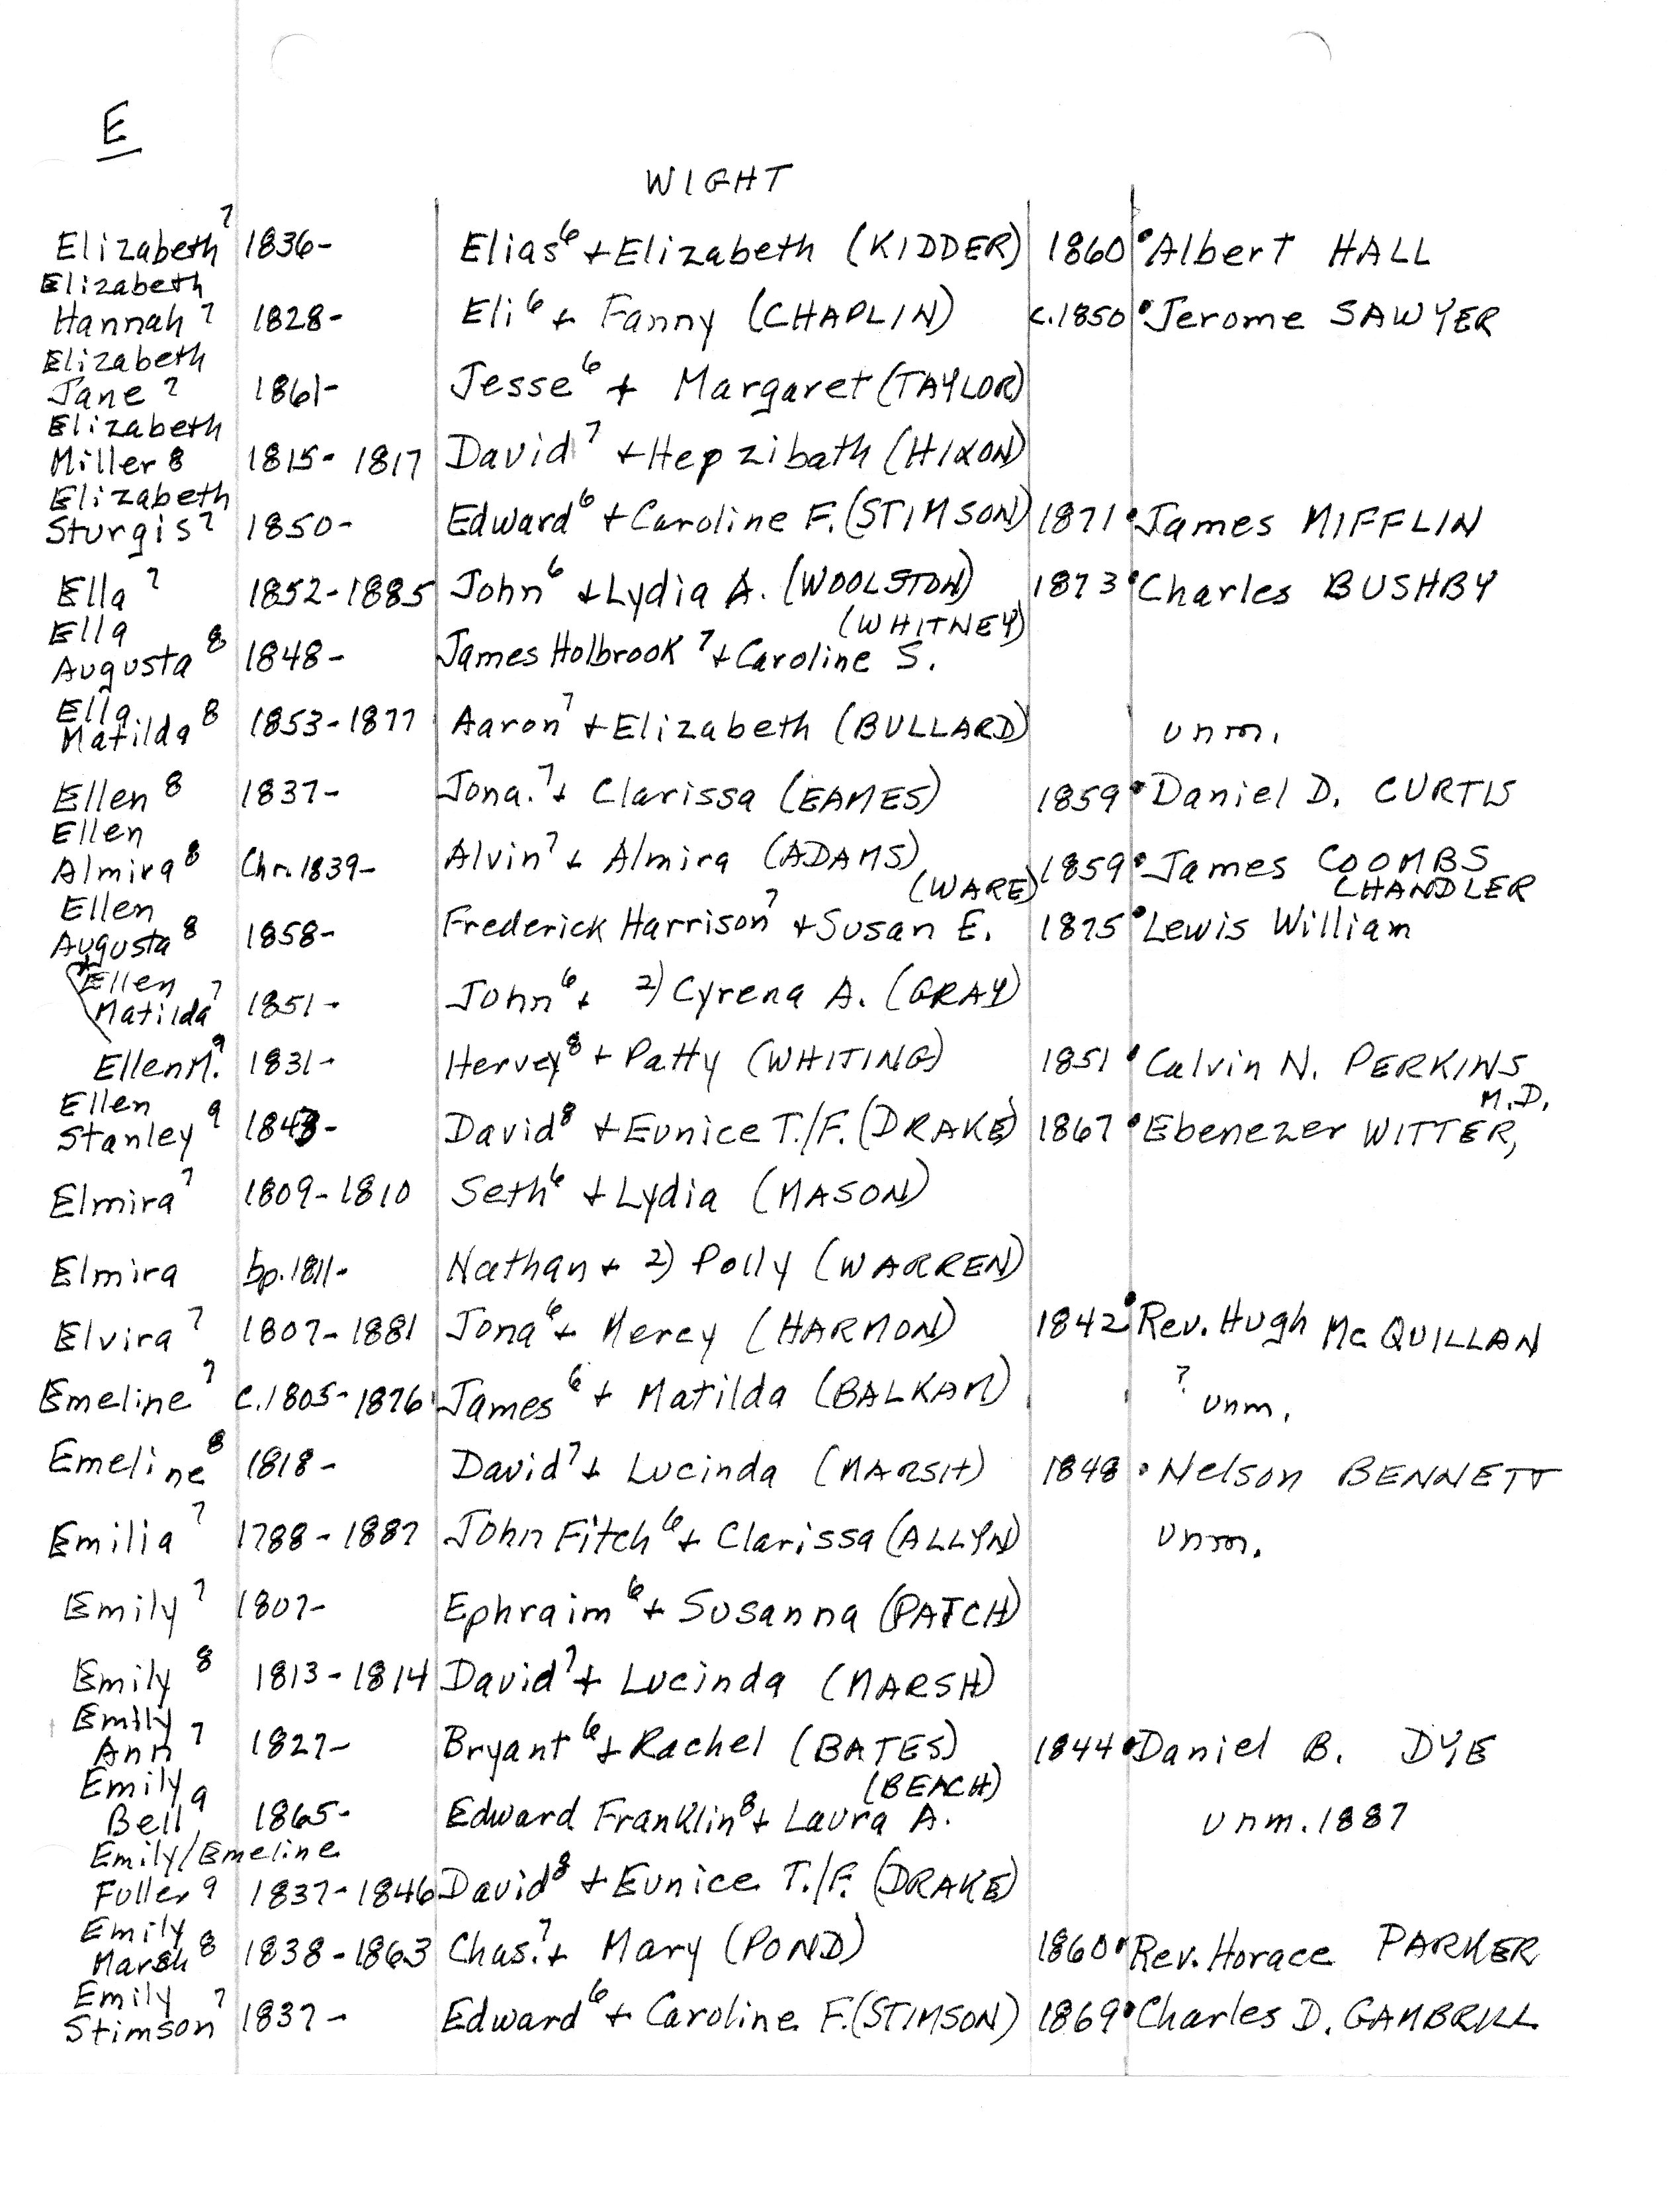 E
WIGHT
Elizabeth⁷ 1836- Elias⁶ + Elizabeth (KIDDER) 1860 • Albert HALL
Elizabeth
Hannah⁷ 1828- Eli⁶ + Fanny (CHAPLIN) c.1850 • Jerome SAWYER
Elizabeth
Jane⁷ 1861- Jesse⁶ + Margaret (TAYLOR)
Elizabeth
Miller⁸ 1815-1817 David⁷ + Hepzibath (HIXON)
Elizabeth
Sturgis⁷ 1850- Edward⁶ + Caroline F. (STIMSON) 1871 • James MIFFLIN
Ella⁷ 1852-1885 John⁶ + Lydia A. (WOOLSTON) 1873 • Charles BUSHBY
Ella (WHITNEY)
Augusta⁸ 1848- James Holbrook⁷ + Caroline S.
Ella
Matilda⁸ 1853-1877 Aaron⁷ + Elizabeth (BULLARD) unm.
Ellen⁸ 1837- Jona.⁷ + Clarissa (EAMES) 1859 • Daniel D. CURTIS
Ellen
Almira⁸ Chr. 1839- Alvin⁷ + Almira (ADAMS) 1859 • James COOMBS
Ellen (WARE) CHANDLER
Augusta⁸ 1858- Frederick Harrison⁷ + Susan E. 1875 • Lewis William
*Ellen
Matilda⁷ 1851- John⁶ + 2) Cyrena A. (GRAY)
Ellen M.⁹ 1831- Hervey⁸ + Patty (WHITING) 1851 • Calvin N. PERKINS
Ellen M.D.
Stanley⁹ 1843- David⁸ + Eunice T./F. (DRAKE) 1867 • Ebenezer WITTER,
Elmira⁷ 1809-1810 Seth⁶ + Lydia (MASON)
Elmira bp. 1811- Nathan + 2) Polly (WARREN)
Elvira⁷ 1807-1881 Jona⁶ + Mercy (HARMON) 1842 • Rev. Hugh McQUILLAN
Emeline⁷ c.1805-1876 James⁶ + Matilda (BALKAM) ? unm.
Emeline⁸ 1818- David⁷ + Lucinda (MARSH) 1848 • Nelson BENNETT
Emilia⁷ 1788-1887 John Fitch⁶ + Clarissa (ALLYN) unm.
Emily⁷ 1807- Ephraim⁶ + Susanna (PATCH)
Emily⁸ 1813-1814 David⁷ + Lucinda (MARSH)
Emily
Ann⁷ 1827- Bryant⁶ + Rachel (BATES) 1844 • Daniel B. DYE
Emily (BEACH)
Bell⁹ 1865- Edward Franklin⁸ + Laura A. unm. 1887
Emily/Emeline
Fuller⁹ 1837-1846 David⁸ + Eunice T./F. (DRAKE)
Emily
Marsh⁸ 1838-1863 Chas.⁷ + Mary (POND) 1860 • Rev. Horace PARKER
Emily
Stimson⁷ 1837- Edward⁶ + Caroline F. (STIMSON) 1869 • Charles D. GAMBRILL